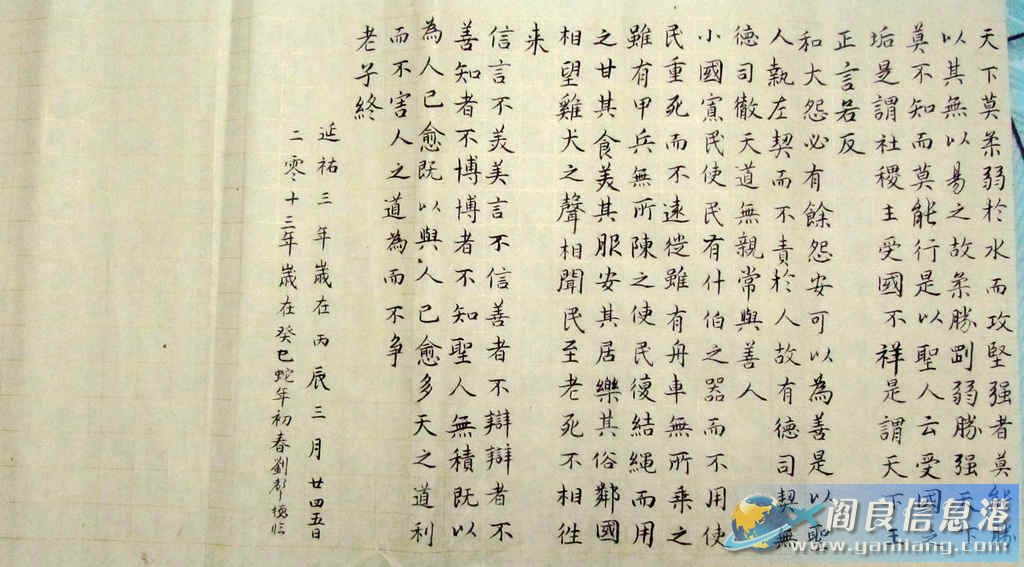 天下莫柔弱於水而攻堅强者莫能勝
以其無以易之故柔勝剛弱勝强天下
莫不知而莫能行是以聖人云受國之
垢是謂社稷主受國不祥是謂天下王
正言若反
和大怨必有餘怨安可以為善是以聖
人執左契而不責於人故有德司契無
德司徹天道無親常與善人
小國寡民使民有什伯之器而不用使
民重死而不遠徙雖有舟車無所乘之
雖有甲兵無所陳之使民復結繩而用
之甘其食美其服安其居樂其俗鄰國
相望雞犬之聲相聞民至老死不相往
来
信言不美美言不信善者不辯辯者不
善知者不博博者不知聖人無積既以
為人己愈既以與人己愈多天之道利
而不害人之道為而不争
老子終
延祐三年歲在丙辰三月廿四五日
二零十三年歲在癸巳蛇年初春劉
阎良信息港
www.yanliang.com